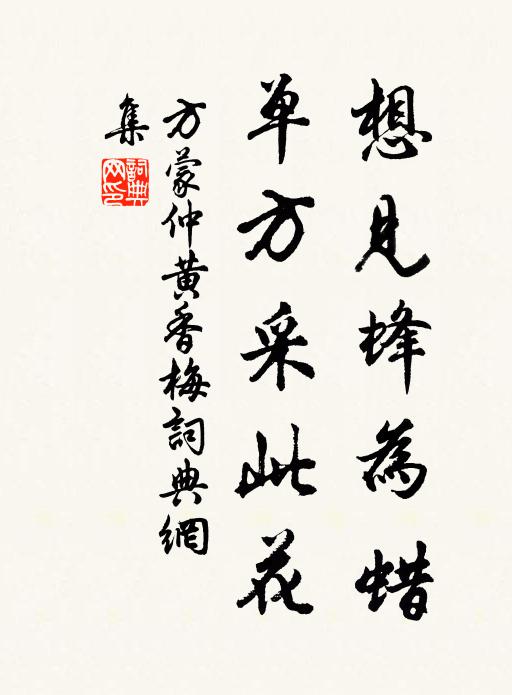 想見蜂為蜡
单方采此花
方蒙仲黄香梅詞典網
集
詞典网印